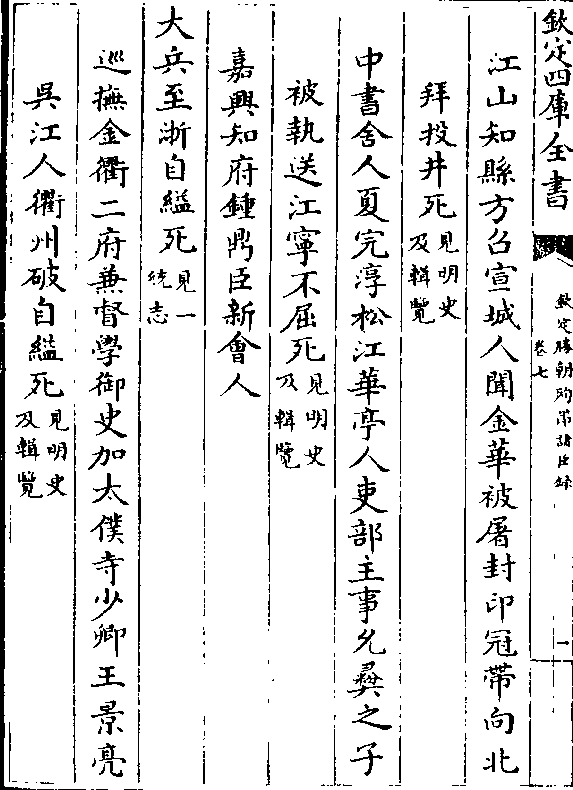 欽定四庫全書
欽定勝朝殉節諸臣録
卷七
一
江山知縣方召宣城人聞金華被屠封印冠帶向北
拜投井死見明史及輯覽
中書舍人夏完淳松江華亭人吏部主事允彝之子
被執送江寧不屈死見明史及輯覽
嘉興知府鍾鼎臣新會人
大兵至浙自縊死見一統志
巡撫金衢二府兼督學御史加太僕寺少卿王景亮
吳江人衢州破自縊死見明史及輯覽